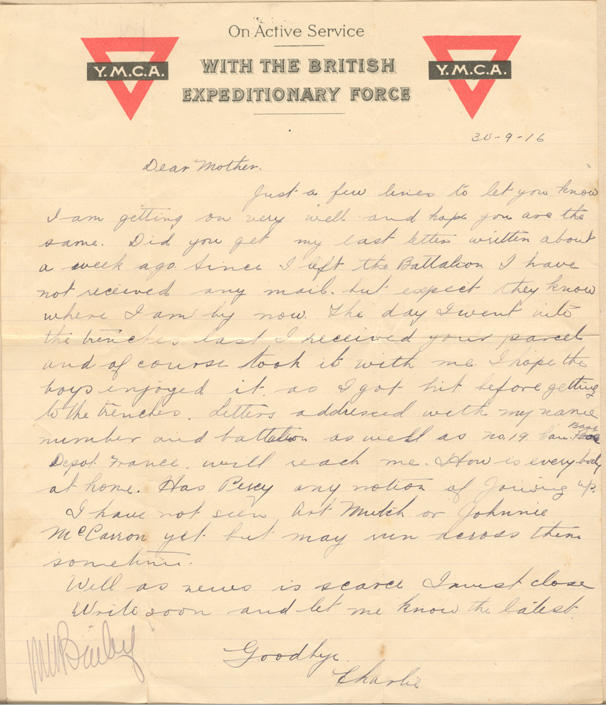 On Active Service
WITH THE BRITISH
EXPEDITIONARY FORCE
Y.M.C.A.
Y.M.C.A.
30-9-16
Dear Mother.
Just a few lines to let you know
I am getting on very well and hope you are the
same. Did you get my last letter written about
a week ago. Since I left the Battalion I have
not received any mail. but expect they know
where I am by now. The day I went into
the trenches last I received your parcel
and of course took it with me. I hope the
boys enjoyed it as I got hit before getting
to the trenches. Letters addressed with my name
number and battalion as well as no. 19 Can. Base
Depot France. will reach me. How is everybody
at home. Has Percy any notion of Joining up.
I have not seen Art Mutch or Johnnie
McCarron yet. but may run across them
sometime.
Well as news is scarce I must close
Write soon and let me know the latest.
Goodbye.
Charlie